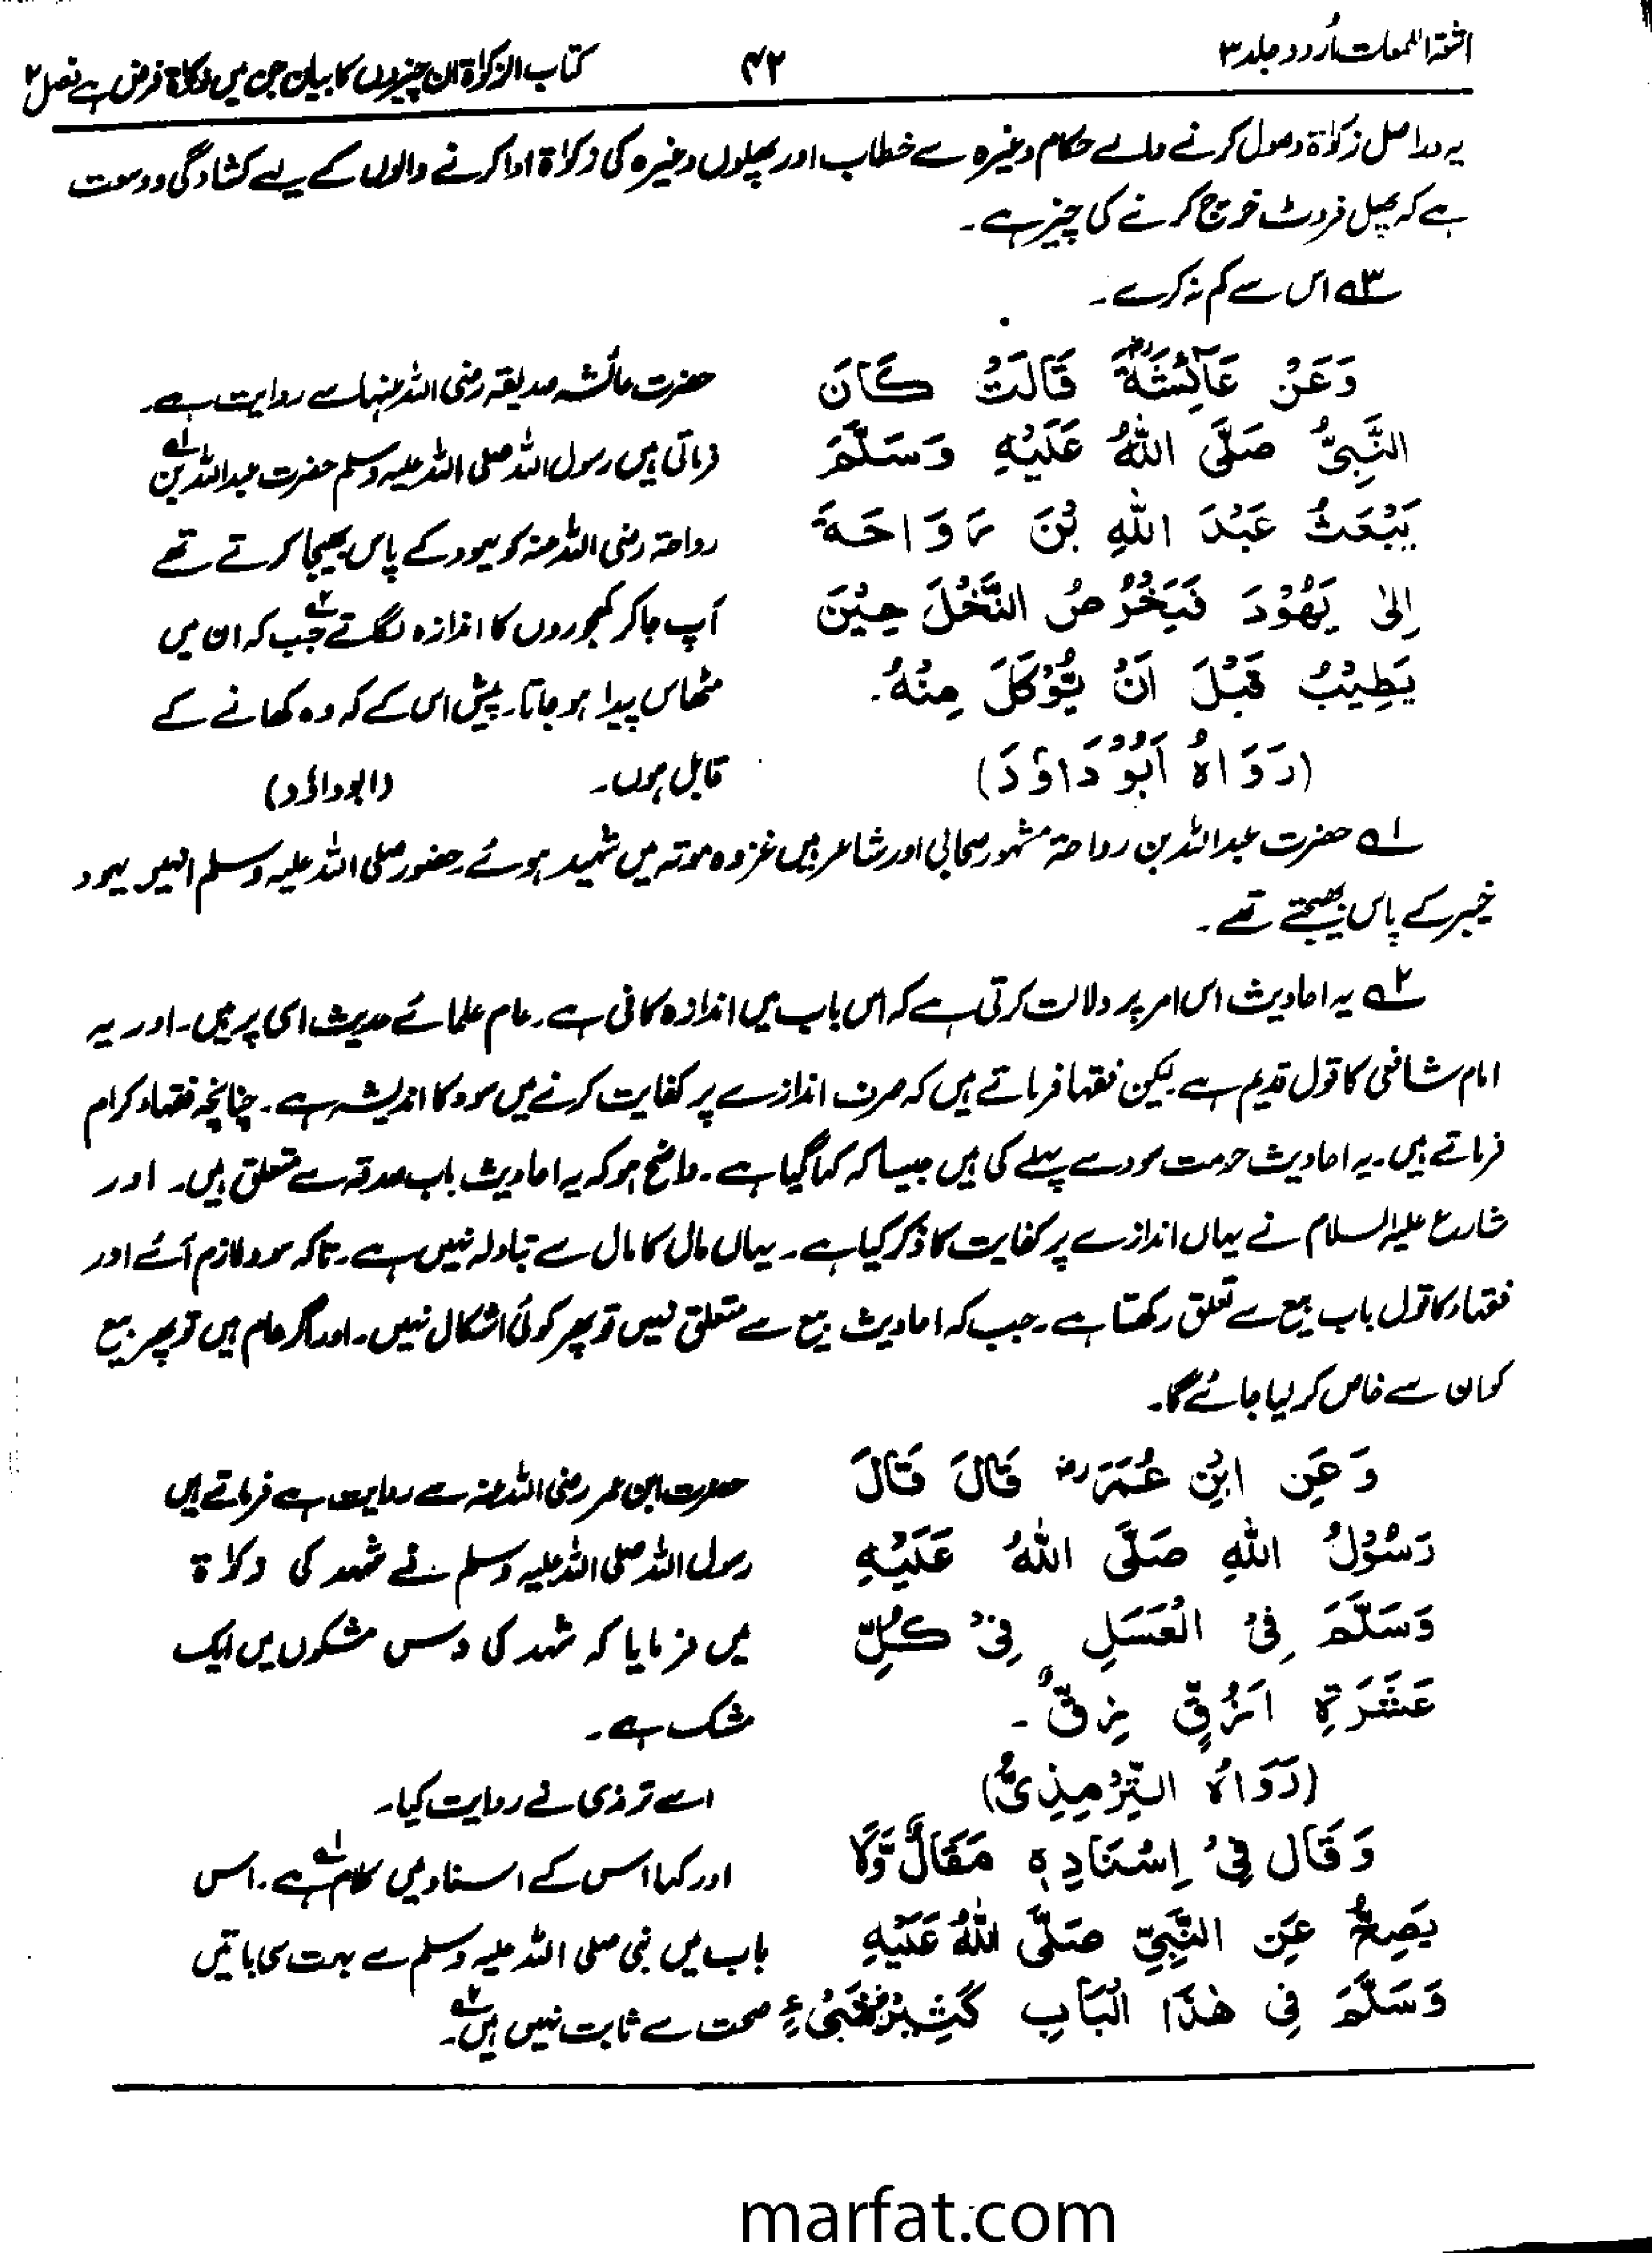 اشعۃ اللمعات اُردو جلد ۳
۴۲
کتاب الزکوٰۃ ان چیزوں کا بیان جن میں زکاۃ فرض ہے فصل ۲
یہ دراصل زکوٰۃ وصول کرنے والے حکام وغیرہ سے خطاب اور پھلوں وغیرہ کی زکوٰۃ ادا کرنے والوں کے لیے کشادگی و وسعت
ہے کہ پھل فروٹ خرچ کرنے کی چیز ہے۔
۳؎ اس سے کم نہ کرے۔
وَعَنْ عَآئِشَةَؓ قَالَتْ كَانَ
النَّبِيُّ صَلَّى اللهُ عَلَيْهِ وَسَلَّمَ
يَبْعَثُ عَبْدَ اللهِ بْنَ رَوَاحَةَ
اِلىٰ يَهُوْدَ فَيَخْرُصُ النَّخْلَ حِيْنَ
يَطِيْبُ قَبْلَ اَنْ يُّؤْكَلَ مِنْهُ۔
(رَوَاهُ اَبُوْ دَاوٗدَ)
حضرت عائشہ صدیقہ رضی اللہ عنہا سے روایت ہے۔
فرماتی ہیں رسول اللہ صلی اللہ علیہ وسلم حضرت عبداللہ بن۱؎
رواحۃ رضی اللہ عنہ کو یہود کے پاس بھیجا کرتے تھے
آپ جا کر کھجوروں کا اندازہ لگاتے۲؎ جب کہ ان میں
مٹھاس پیدا ہو جاتا۔ پیش اس کے کہ وہ کھانے کے
قابل ہوں۔ (ابوداؤد)
۱؎ حضرت عبداللہ بن رواحۃ مشہور صحابی اور شاعر ہیں غزوہ موتہ میں شہید ہوئے حضور صلی اللہ علیہ وسلم انہیں یہود
خیبر کے پاس بھیجتے تھے۔
۲؎ یہ احادیث اس امر پر دلالت کرتی ہے کہ اس باب میں اندازہ کافی ہے۔ عام علمائے حدیث اسی پر ہیں۔ اور یہ
امام شافعی کا قول قدیم ہے لیکن فقہا فرماتے ہیں کہ صرف اندازے پر کفایت کرنے میں سود کا اندیشہ ہے۔ چنانچہ فقہاء کرام
فرماتے ہیں۔ یہ احادیث حرمت سود سے پہلے کی ہیں جیسا کہ کہا گیا ہے۔ واضح ہو کہ یہ احادیث باب صدقہ سے متعلق ہیں۔ اور
شارع علیہ السلام نے یہاں اندازے پر کفایت کا ذکر کیا ہے۔ یہاں مال کا مال سے تبادلہ نہیں ہے۔ تاکہ سود لازم آئے اور
فقہاء کا قول باب بیع سے تعلق رکھتا ہے۔ جب کہ احادیث بیع سے متعلق نہیں تو پھر کوئی اشکال نہیں۔ اور اگر عام ہیں تو پھر بیع
کو ان سے خاص کر لیا جائے گا۔
وَعَنِ ابْنِ عُمَرَؓ قَالَ قَالَ
رَسُوْلُ اللهِ صَلَّى اللهُ عَلَيْهِ
وَسَلَّمَ فِى الْعَسَلِ فِىْ كُلِّ
عَشَرَةِ اَزُقٍّ زِقٌّ۔
(رَوَاهُ التِّرْمِذِىُّ)
وَقَالَ فِىْ اِسْنَادِهٖ مَقَالٌ وَّلَا
يَصِحُّ عَنِ النَّبِيِّ صَلَّى اللهُ عَلَيْهِ
وَسَلَّمَ فِى هٰذَا الْبَابِ كَثِيْرُ شَىْءٍ
حضرت ابن عمر رضی اللہ عنہ سے روایت ہے فرماتے ہیں
رسول اللہ صلی اللہ علیہ وسلم نے شہد کی زکاۃ
میں فرمایا کہ شہد کی دس مشکوں میں ایک
مشک ہے۔
اسے ترمذی نے روایت کیا۔
اور کہا اس کے اسناد میں کلام۱؎ ہے۔ اس
باب میں نبی صلی اللہ علیہ وسلم سے بہت سی باتیں
صحت سے ثابت نہیں ہیں۲؎۔
marfat.com